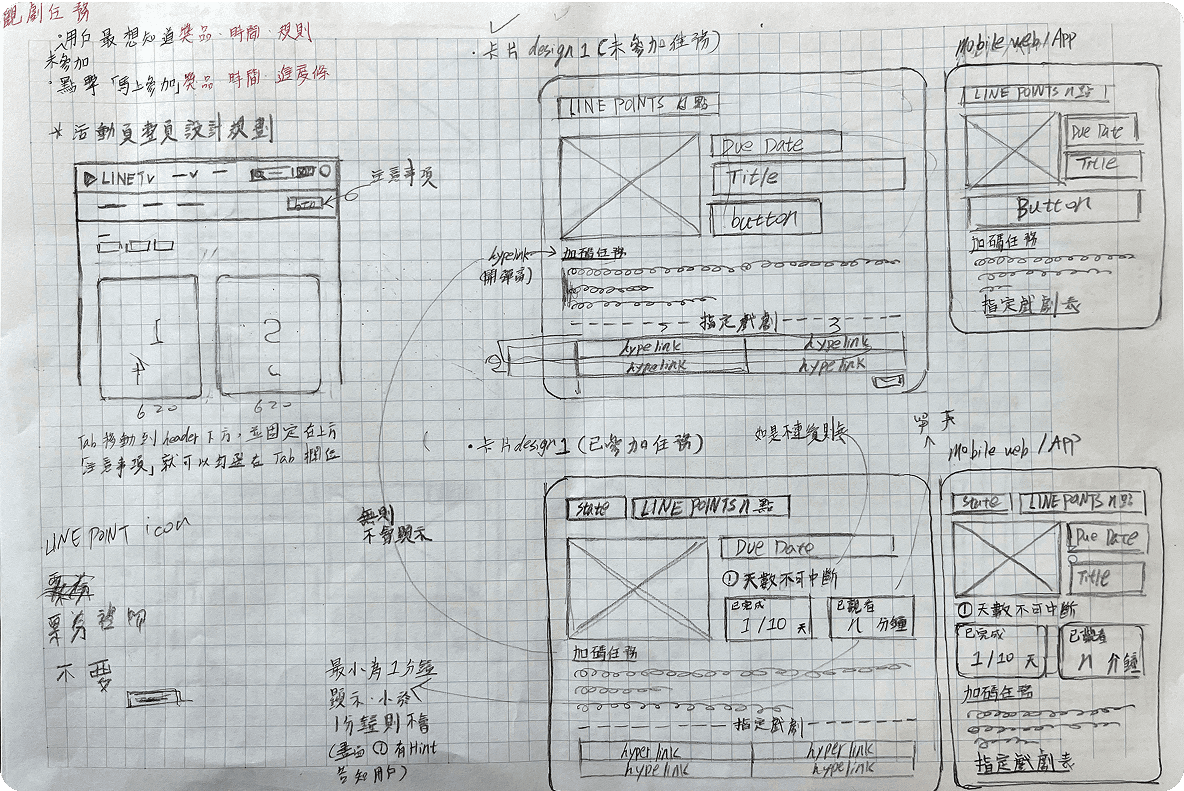 觀劇任務
·用戶最想知道獎品·時間·規則
未參加
·點擊「馬上參加」獎品·時間·進度條
* 活動頁整頁設計規劃
LINE TV
注意事項
1
2
620
620
Tab 移動到 header 下方，並固定在上方
「注意事項」就可以勾選在 Tab 欄位
LINE POINT icon
不要
·卡片 design 1 (未參加任務)
LINE POINTS n 點
Due Date
Title
button
hypelink
加碼任務
指定戲劇
3
hypelink
hypelink
hypelink
hypelink
Mobile web / App
LINE POINTS n 點
Due Date
Title
Button
加碼任務
指定戲劇表
·卡片 design 1 (已參加任務)
無則
不會顯示
state
LINE POINTS n 點
Due Date
① 天數不可中斷
已完成
1/10 天
已觀看
n 分鐘
加碼任務
指定戲劇
hyperlink
hyperlink
hypelink
hypelink
最小為1分鐘
顯示·小於
1分鐘則不會
① 有Hint
告知用戶)
Mobile web / APP
state
LINE POINTS n 點
Due Date
Title
① 天數不可中斷
已完成
1/10 天
已觀看
n 分鐘
加碼任務
指定戲劇表